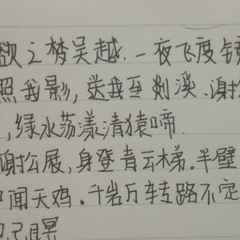 欲之梦吴越.一夜飞度
照我影,送我至剡溪.谢
,绿水荡漾清猿啼.
谢公屐,身登青云梯.半壁
闻天鸡.千岩万转路不定